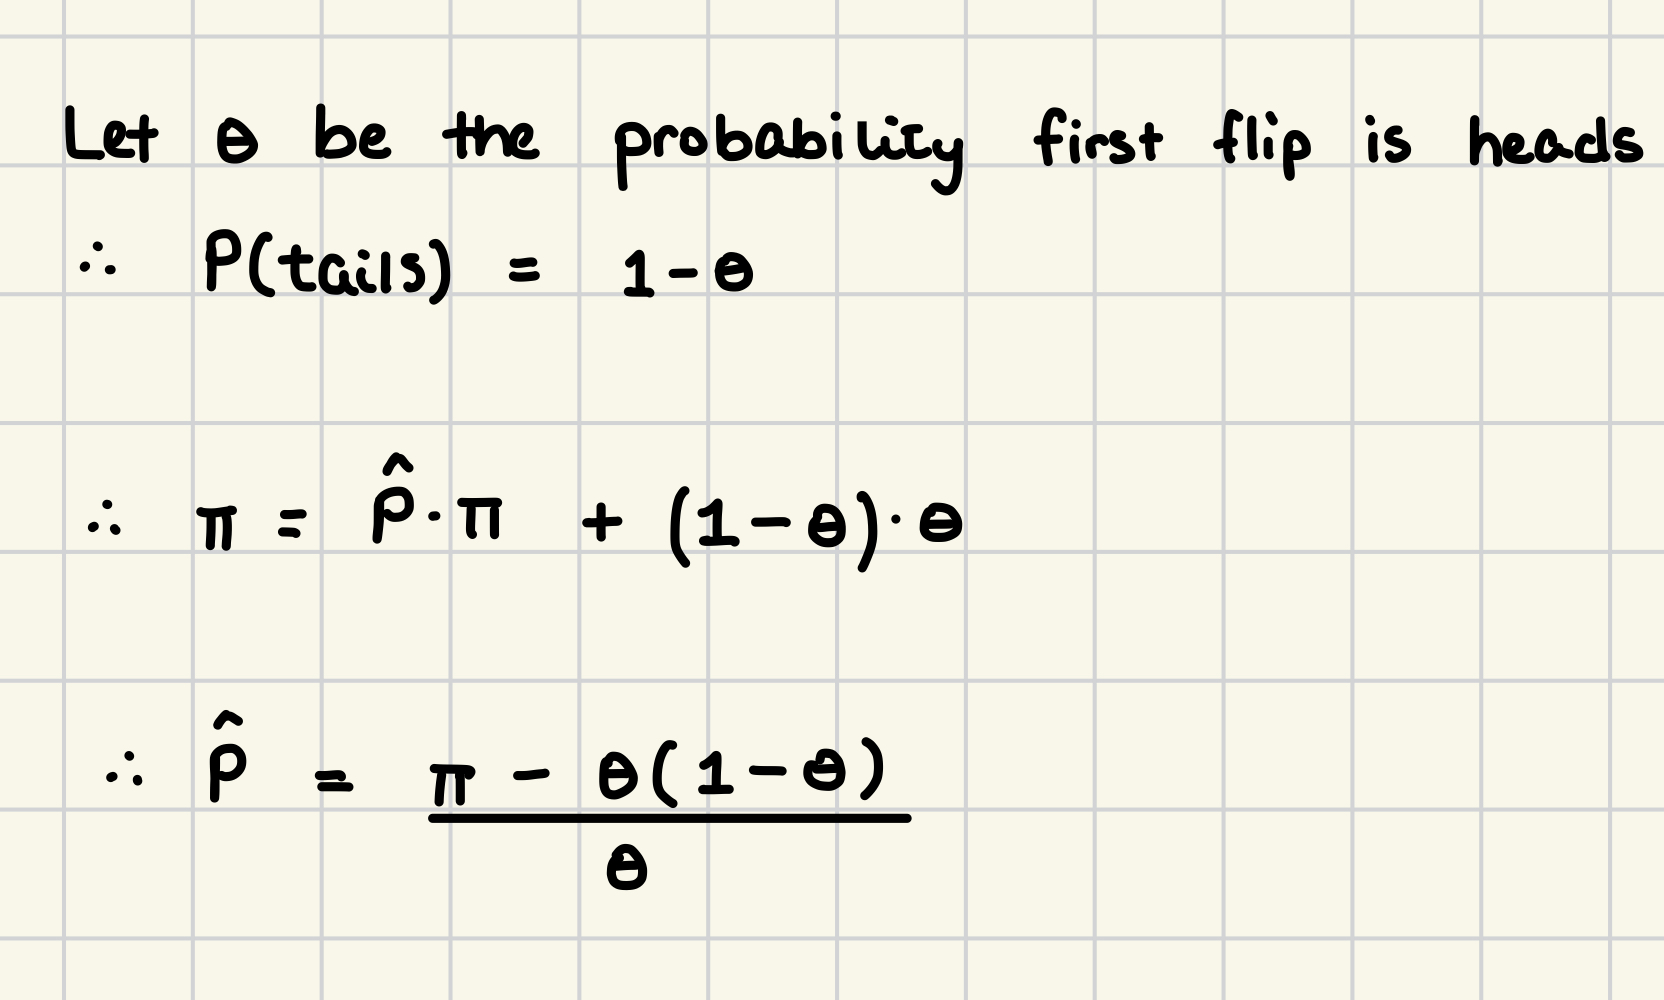 Let θ be the probability first flip is heads
∴ P(tails) = 1-θ
∴ π = p̂·π + (1-θ)·θ
∴ p̂ = π - θ(1-θ)
θ